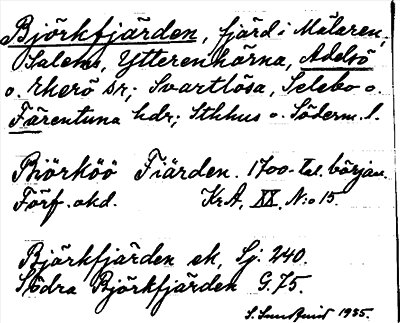 Björkfjärden, fjärd i Mälaren,
Salems, Ytterenhörna, Adelsö
o. Ekerö sr; Svartlösa, Selebo o.
Färentuna hdr; Sthlms o. Söderm. l.
Biörköö Fiärden. 1700-tal. början.
Förf. okd. Kr.A, XX. N:o 15.
Björkfjärden ek, Sj. 240.
Södra Björkfjärden G. 75.
S. 1935.